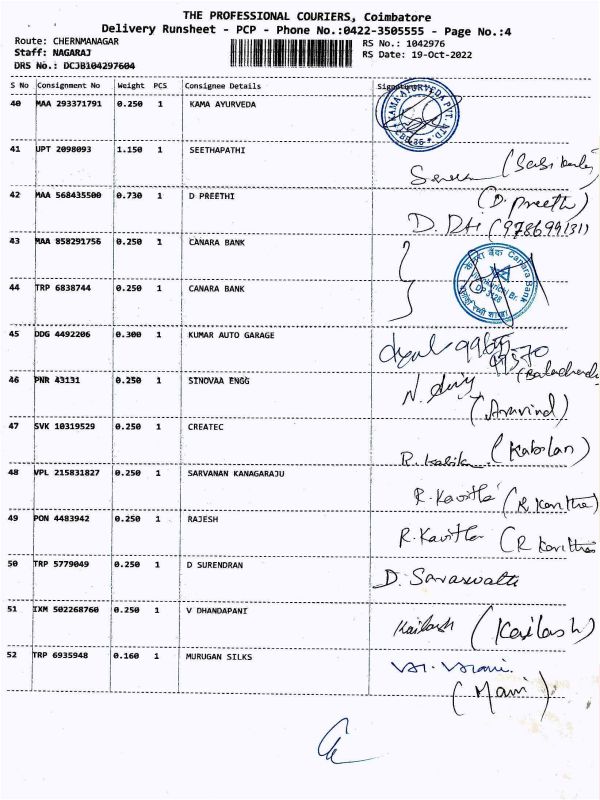 THE PROFESSIONAL COURIERS, Coimbatore
Delivery Runsheet - PCP - Phone No.:0422-3505555 - Page No.:4
Route: CHERNMANAGAR RS No.: 1042976
Staff: NAGARAJ RS Date: 19-Oct-2022
DRS No.: DCJB104297604
S No Consignment No Weight PCS Consignee Details Signature
40 MAA 293371791 0.250 1 KAMA AYURVEDA
KAMA AYURVEDA PVT. LTD.
41 UPT 2098093 1.150 1 SEETHAPATHI
42 MAA 568435500 0.730 1 D PREETHI (D. Preethi)
(9786991311)
43 MAA 858291756 0.250 1 CANARA BANK
केनरा बैंक Canara Bank
44 TRP 6838744 0.250 1 CANARA BANK
45 DDG 4492206 0.300 1 KUMAR AUTO GARAGE
46 PNR 43131 0.250 1 SINOVAA ENGG
(Aravind)
47 SVK 10319529 0.250 1 CREATEC
(Kabilan)
48 VPL 215831827 0.250 1 SARVANAN KANAGARAJU
R. Kavitha (R Kavitha)
49 PON 4483942 0.250 1 RAJESH
R. Kavitha (R Kavitha
50 TRP 5779049 0.250 1 D SURENDRAN
D. Saraswathi
51 IXM 502268760 0.250 1 V DHANDAPANI
Kailash (Kailash)
52 TRP 6935948 0.160 1 MURUGAN SILKS
(Mani)